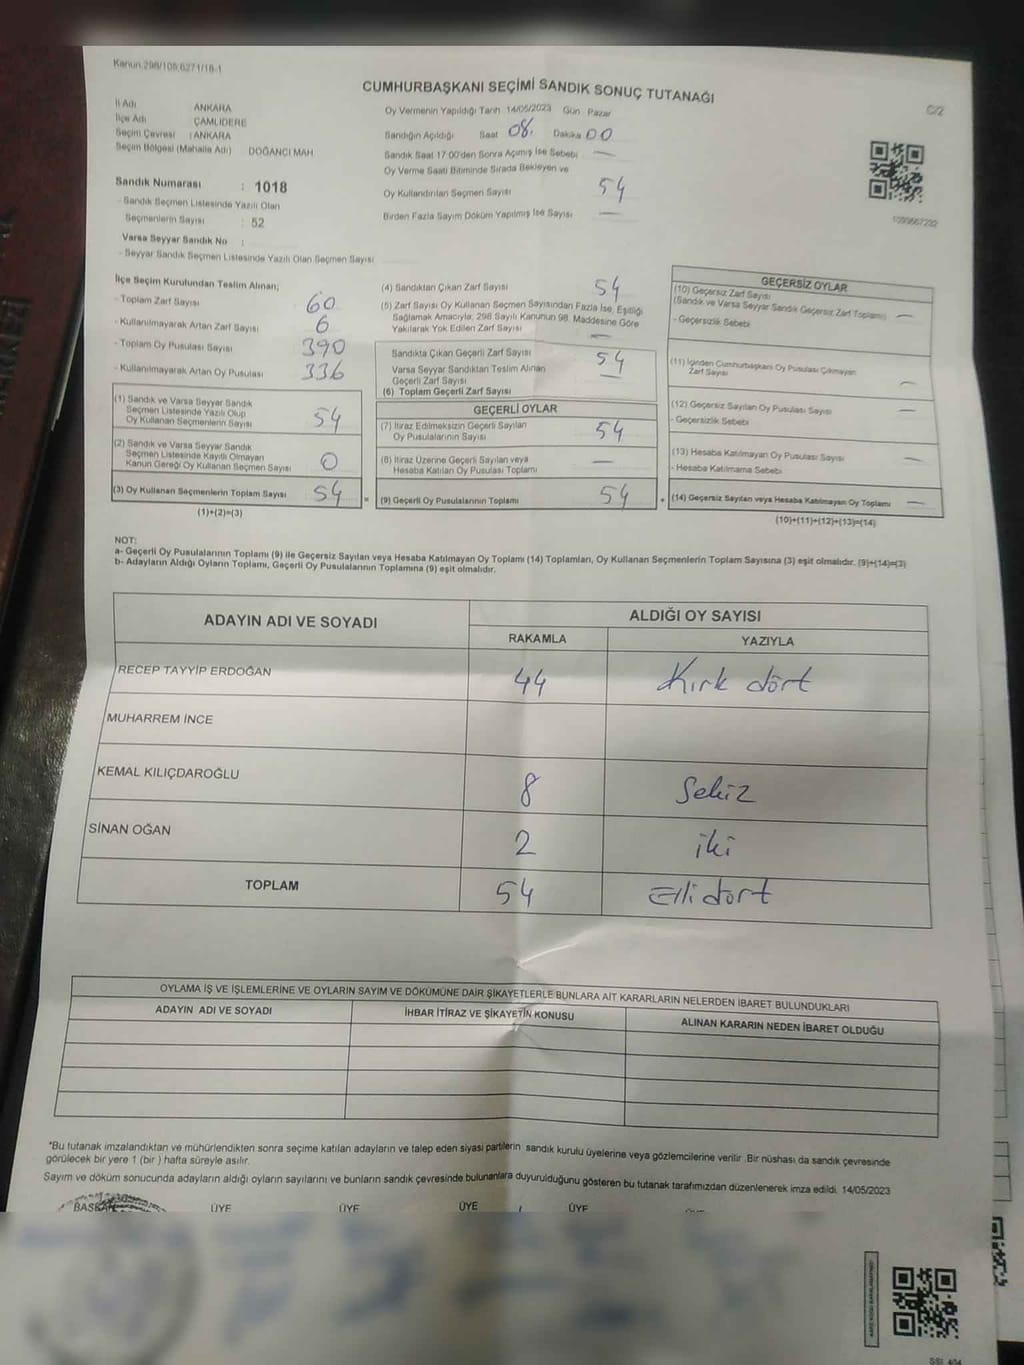 Kanun:298/105;6271/18-1
CUMHURBAŞKANI SEÇİMİ SANDIK SONUÇ TUTANAĞI
C/2
İl Adı ANKARA
İlçe Adı ÇAMLIDERE
Seçim Çevresi : ANKARA
Seçim Bölgesi (Mahalle Adı) DOĞANCI MAH
Sandık Numarası : 1018
- Sandık Seçmen Listesinde Yazılı Olan
Seçmenlerin Sayısı : 52
Varsa Seyyar Sandık No :
- Seyyar Sandık Seçmen Listesinde Yazılı Olan Seçmen Sayısı
Oy Vermenin Yapıldığı Tarih 14/05/2023 Gün Pazar
Sandığın Açıldığı Saat 08. Dakika 00
Sandık Saat 17:00'den Sonra Açmış İse Sebebi —
Oy Verme Saati Bitiminde Sırada Bekleyen ve
Oy Kullandırılan Seçmen Sayısı 54
Birden Fazla Sayım Döküm Yapılmış İse Sayısı —
İlçe Seçim Kurulundan Teslim Alınan;
- Toplam Zarf Sayısı 60
- Kullanılmayarak Artan Zarf Sayısı 6
- Toplam Oy Pusulası Sayısı 390
- Kullanılmayarak Artan Oy Pusulası 336
(1) Sandık ve Varsa Seyyar Sandık
Seçmen Listesinde Yazılı Olup
Oy Kullanan Seçmenlerin Sayısı 54
(2) Sandık ve Varsa Seyyar Sandık
Seçmen Listesinde Kayıtlı Olmayan
Kanun Gereği Oy Kullanan Seçmen Sayısı 0
(3) Oy Kullanan Seçmenlerin Toplam Sayısı 54
(1)+(2)=(3)
(4) Sandıktan Çıkan Zarf Sayısı 54
(5) Zarf Sayısı Oy Kullanan Seçmen Sayısından Fazla İse, Eşitliği
Sağlamak Amacıyla; 298 Sayılı Kanunun 98. Maddesine Göre
Yakılarak Yok Edilen Zarf Sayısı —
Sandıkta Çıkan Geçerli Zarf Sayısı 54
Varsa Seyyar Sandıktan Teslim Alınan
Geçerli Zarf Sayısı —
(6) Toplam Geçerli Zarf Sayısı
GEÇERLİ OYLAR
(7) İtiraz Edilmeksizin Geçerli Sayılan
Oy Pusulalarının Sayısı 54
(8) İtiraz Üzerine Geçerli Sayılan veya
Hesaba Katılan Oy Pusulası Toplamı —
= (9) Geçerli Oy Pusulalarının Toplamı 54 +
GEÇERSİZ OYLAR
(10) Geçersiz Zarf Sayısı
(Sandık ve Varsa Seyyar Sandık Geçersiz Zarf Toplamı) —
- Geçersizlik Sebebi
(11) İçinden Cumhurbaşkanı Oy Pusulası Çıkmayan
Zarf Sayısı —
(12) Geçersiz Sayılan Oy Pusulası Sayısı —
- Geçersizlik Sebebi
(13) Hesaba Katılmayan Oy Pusulası Sayısı —
- Hesaba Katılmama Sebebi
(14) Geçersiz Sayılan veya Hesaba Katılmayan Oy Toplamı —
(10)+(11)+(12)+(13)=(14)
NOT:
a- Geçerli Oy Pusulalarının Toplamı (9) ile Geçersiz Sayılan veya Hesaba Katılmayan Oy Toplamı (14) Toplamları, Oy Kullanan Seçmenlerin Toplam Sayısına (3) eşit olmalıdır. (9)+(14)=(3)
b- Adayların Aldığı Oyların Toplamı, Geçerli Oy Pusulalarının Toplamına (9) eşit olmalıdır.
ADAYIN ADI VE SOYADI ALDIĞI OY SAYISI
RAKAMLA YAZIYLA
RECEP TAYYİP ERDOĞAN 44 Kırk dört
MUHARREM İNCE
KEMAL KILIÇDAROĞLU 8 Sekiz
SİNAN OĞAN 2 iki
TOPLAM 54 Elli dört
OYLAMA İŞ VE İŞLEMLERİNE VE OYLARIN SAYIM VE DÖKÜMÜNE DAİR ŞİKAYETLERLE BUNLARA AİT KARARLARIN NELERDEN İBARET BULUNDUKLARI
ADAYIN ADI VE SOYADI İHBAR İTİRAZ VE ŞİKAYETİN KONUSU ALINAN KARARIN NEDEN İBARET OLDUĞU
*Bu tutanak imzalandıktan ve mühürlendikten sonra seçime katılan adayların ve talep eden siyasi partilerin sandık kurulu üyelerine veya gözlemcilerine verilir. Bir nüshası da sandık çevresinde
görülecek bir yere 1 (bir ) hafta süreyle asılır.
Sayım ve döküm sonucunda adayların aldığı oyların sayılarını ve bunların sandık çevresinde bulunanlara duyurulduğunu gösteren bu tutanak tarafımızdan düzenlenerek imza edildi. 14/05/2023
BAŞKAN ÜYE ÜYE ÜYE ÜYE